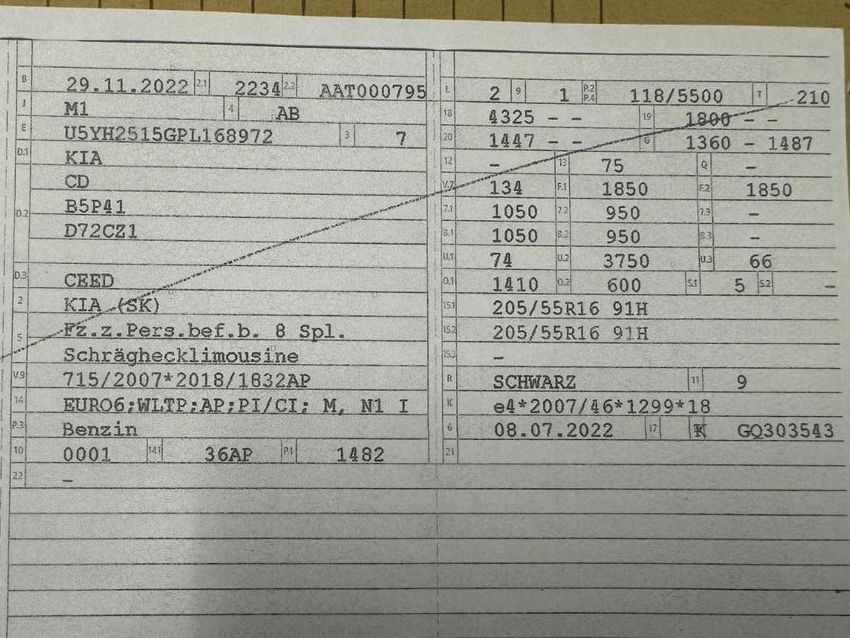 B 29.11.2022 2.1 2234 2.2 AAT000795
J M1 4 AB
E U5YH2515GPL168972 3 7
D.1 KIA
CD
D.2 B5P41
D72CZ1
D.3 CEED
2 KIA (SK)
5 Fz.z.Pers.bef.b. 8 Spl.
Schräghecklimousine
V.9 715/2007*2018/1832AP
14 EURO6;WLTP;AP;PI/CI; M, N1 I
P.3 Benzin
10 0001 14.1 36AP P.1 1482
22 –
L 2 9 1 P.2 P.4 118/5500 T 210
18 4325 – – 19 1800 – –
20 1447 – – G 1360 – 1487
12 – 13 75 Q –
V.7 134 F.1 1850 F.2 1850
7.1 1050 7.2 950 7.3 –
8.1 1050 8.2 950 8.3 –
U.1 74 U.2 3750 U.3 66
O.1 1410 O.2 600 S.1 5 S.2 –
15.1 205/55R16 91H
15.2 205/55R16 91H
15.3 –
R SCHWARZ 11 9
K e4*2007/46*1299*18
6 08.07.2022 17 K GQ303543
21